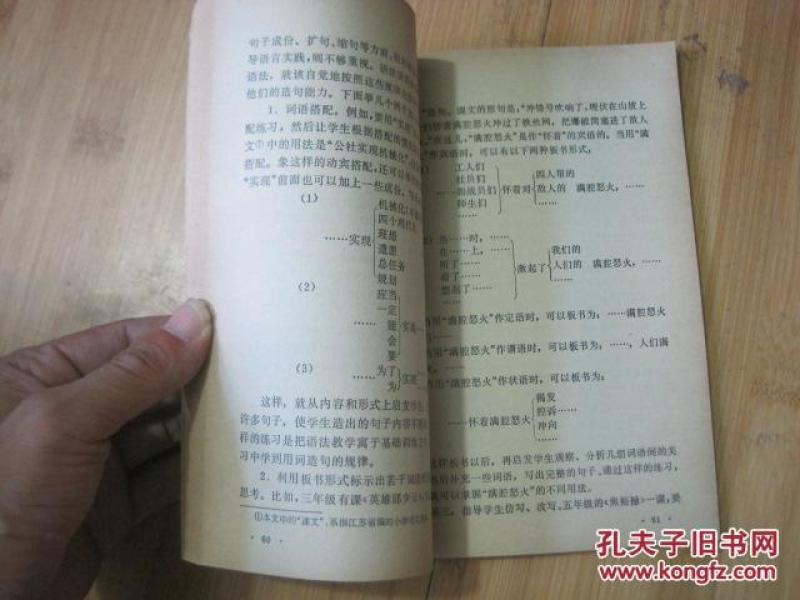 句子成份、扩句、缩句等方面
导语言实践，则不够重视。
语法，就该自觉地按照这些规律
他们的造句能力。下面举几个例
1．词语搭配。例如，要用“实现”
配练习，然后让学生根据搭配的
文①中的用法是“公社实现机械化”，
搭配。象这样的动宾搭配，还可以
“实现”前面也可以加上一些成份。
（1）
机械化
四个现代化
理想
……实现
遗愿
总任务
规划
（2）
应当
一定
……能
实现……
会
要
（3）
为了
……
实现……
为
这样，就从内容和形式上启发学生
许多句子，使学生造出的句子内容不
样的练习是把语法教学寓于基础训练之
习中学到用词造句的规律。
2．利用板书形式标示出若干词语
思考。比如，三年级有课《英雄邱少云》
①本文中的“课文”，系指江苏省编的小学
· 60 ·
造句。课文的原句是：“冲锋号吹响了，埋伏在山坡上
满腔怒火冲过了铁丝网，把爆破筒塞进了敌人
“满腔怒火”是作“怀着”的宾语的。当用“满
”作宾语时，可以有以下两种板书形式：
工人们
四人帮的
社员们
……的战员们
怀着对
敌人的 满腔怒火，……
师生们
……
……
当……时，……
在……上，……
我们的
听了……
激起了
人们的 满腔怒火，……
看了……
……
想起了……
用“满腔怒火”作定语时，可以板书为：……满腔怒火
用“满腔怒火”作谓语时，可以板书为：……，人们满
火，……
用“满腔怒火”作状语时，可以板书为：
揭发
控诉……
……怀着满腔怒火
冲向
……
这样板书以后，再启发学生观察、分析几组词语间的关
后补充一些词语，写出完整的句子。通过这样的练习，
可以掌握“满腔怒火”的不同用法。
三，指导学生仿写、改写。五年级的《焦裕禄》一课，要
· 61 ·
孔夫子旧书网
www.kongfz.com